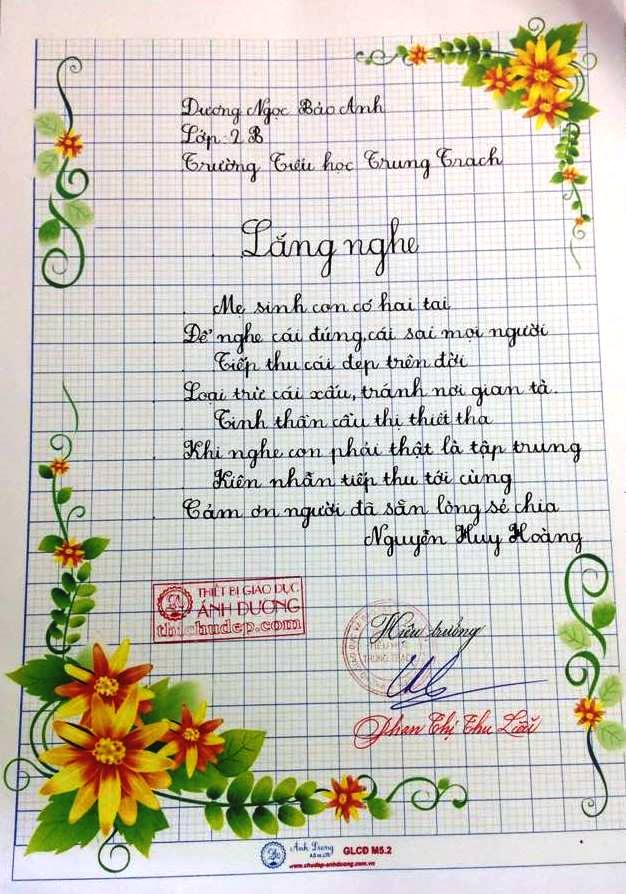 Dương Ngọc Bảo Anh
Lớp: 2 B
Trường Tiểu học Trung Trạch
Lắng nghe
Mẹ sinh con có hai tai
Để nghe cái đúng, cái sai mọi người
Tiếp thu cái đẹp trên đời
Loại trừ cái xấu, tránh nơi gian tà.
Tinh thần cầu thị thiết tha
Khi nghe con phải thật là tập trung
Kiên nhẫn tiếp thu tới cùng
Cảm ơn người đã sẵn lòng sẻ chia
Nguyễn Huy Hoàng
THIẾT BỊ GIÁO DỤC
ÁNH DƯƠNG
thichudep.com
Hiệu trưởng
Phan Thị Thu Liễu
Ánh Dương
GLCD M5.2
www.chudep-anhduong.com.vn